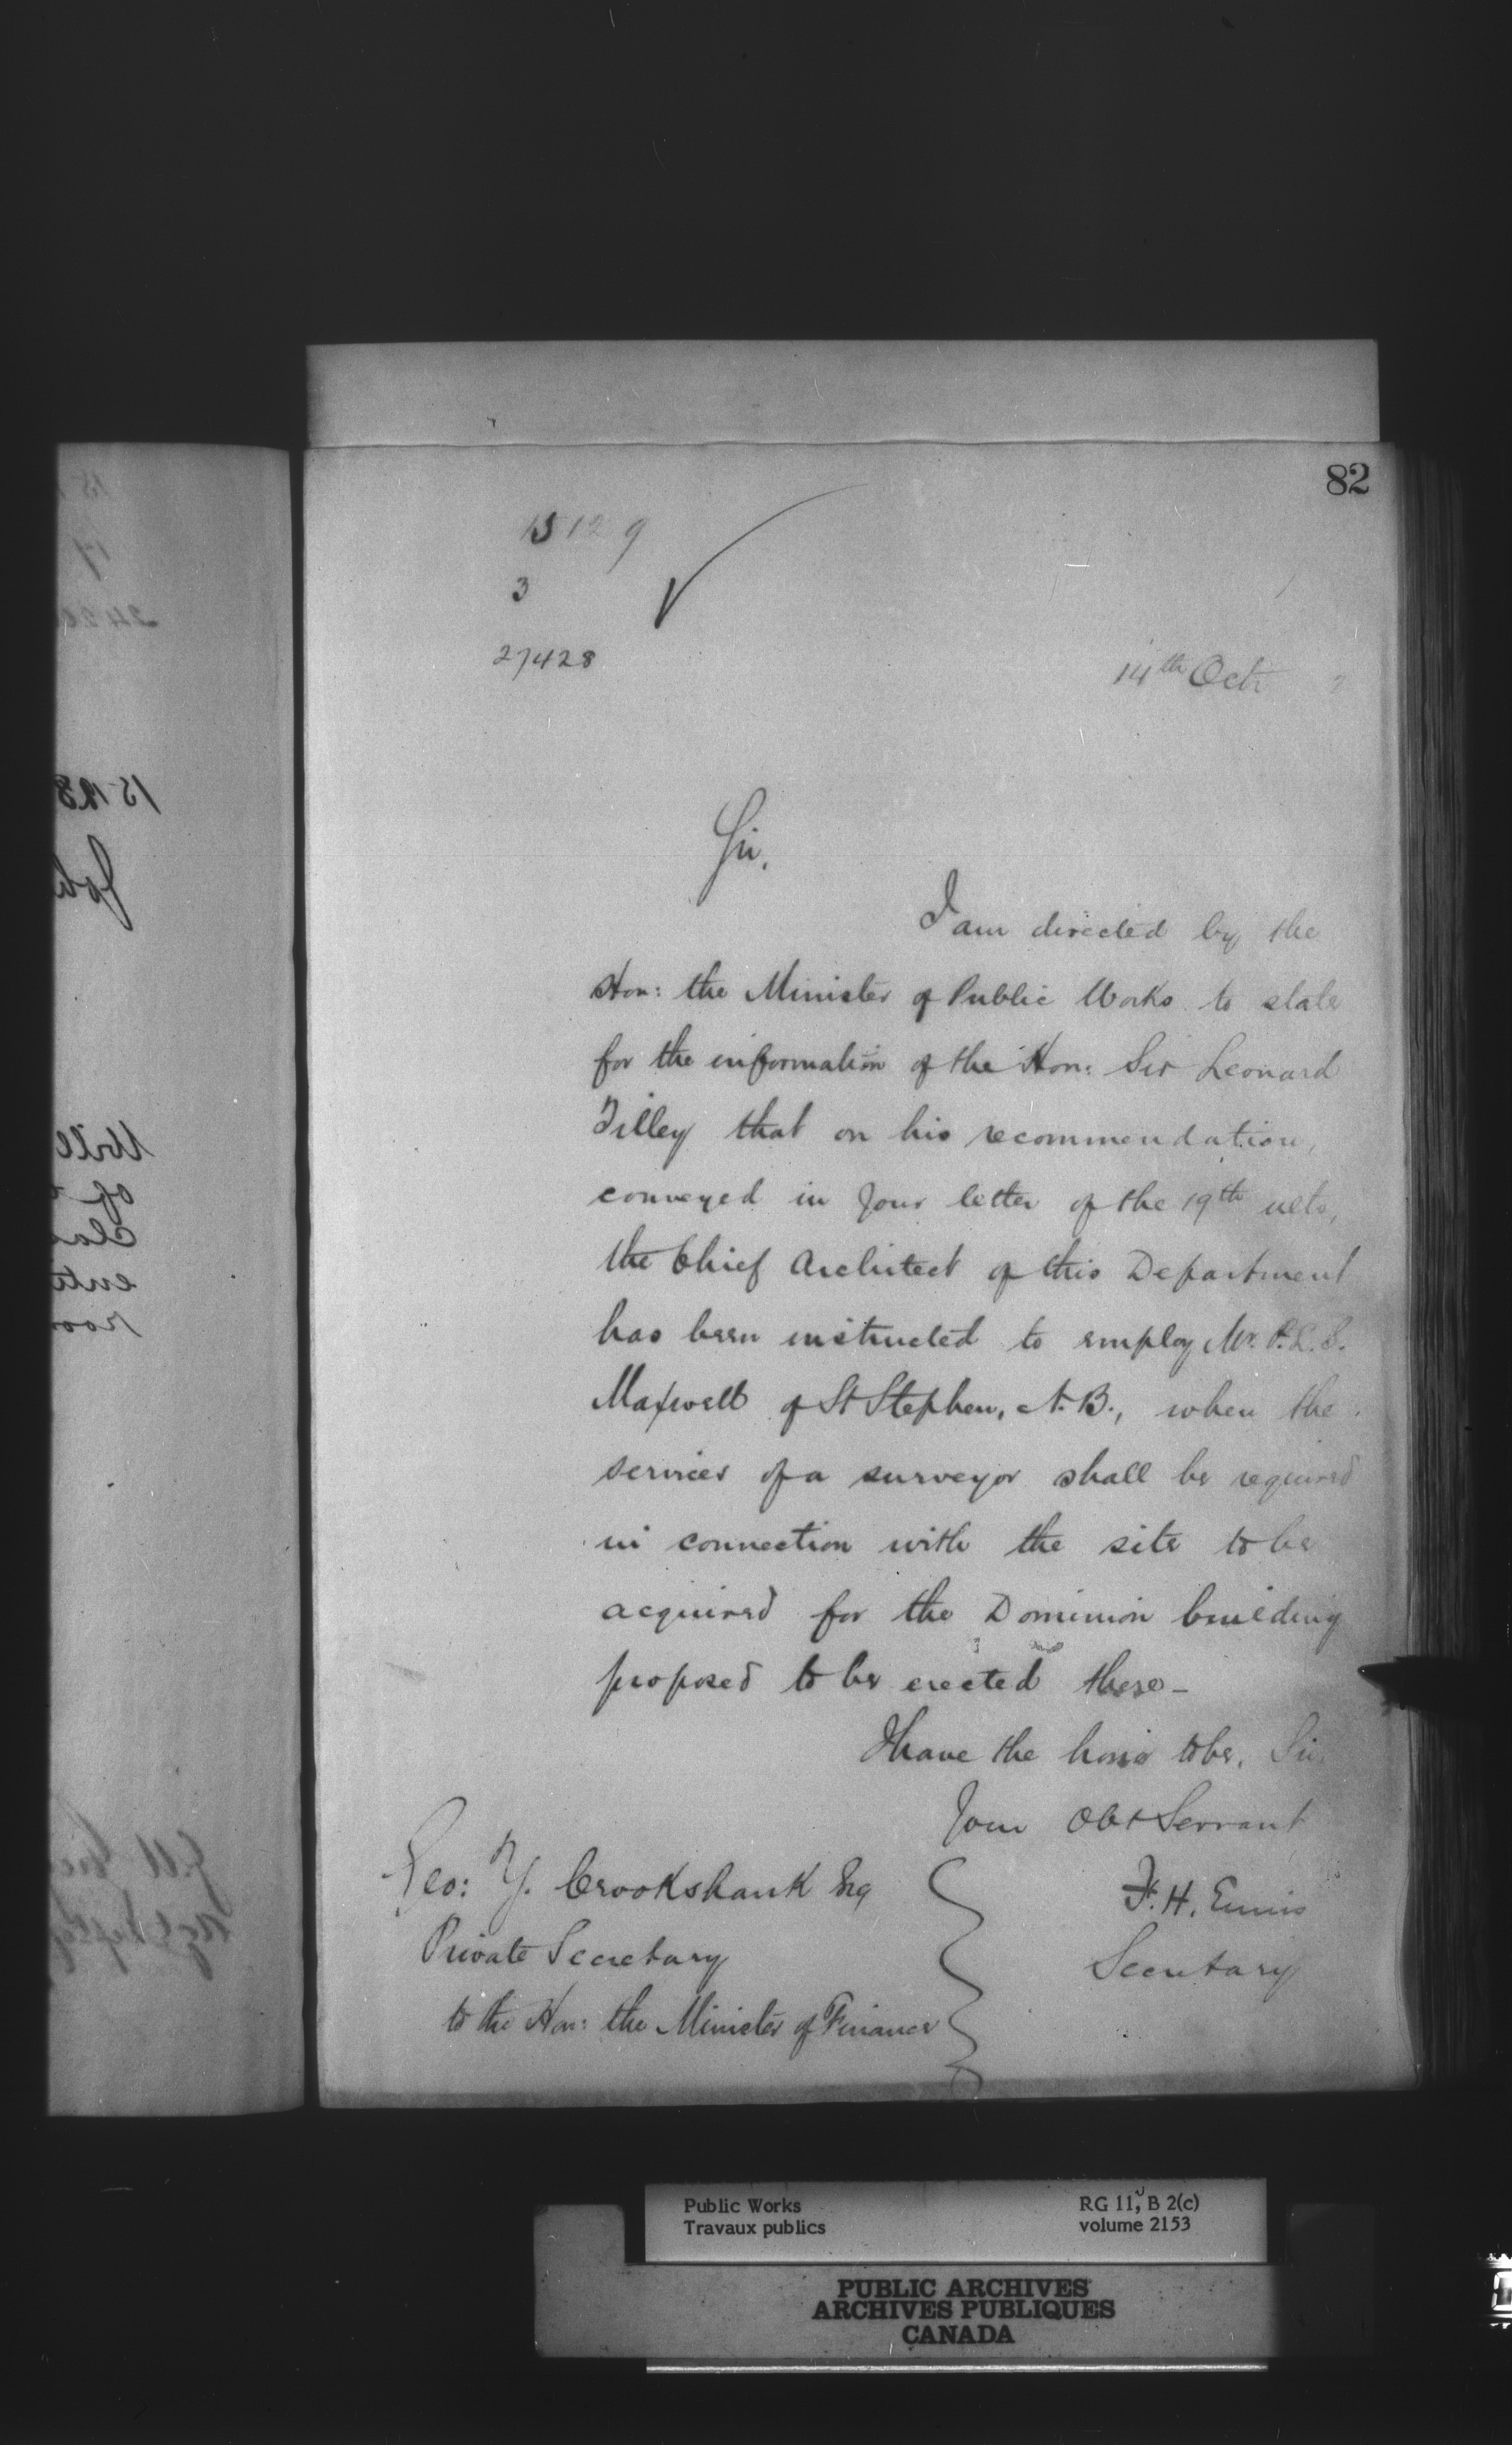 82
15129
3
27428
14th Oct
Sir,
I am directed by the
Hon: the Minister of Public Works to state
for the information of the Hon: Sir Leonard
Tilley that on his recommendation,
conveyed in your letter of the 19th ulto,
the Chief Architect of this Department
has been instructed to employ Mr. P. L. S.
Maxwell of St Stephen, N. B., when the
services of a surveyor shall be required
in connection with the site to be
acquired for the Dominion building
proposed to be erected there -
I have the honor to be, Sir,
Your Obt Servant
F. H. Ennis
Secretary
Geo: Y. Crookshank Esq
Private Secretary
to the Hon: the Minister of Finance
Public Works
Travaux publics
RG 11, B 2(c)
volume 2153
PUBLIC ARCHIVES
ARCHIVES PUBLIQUES
CANADA